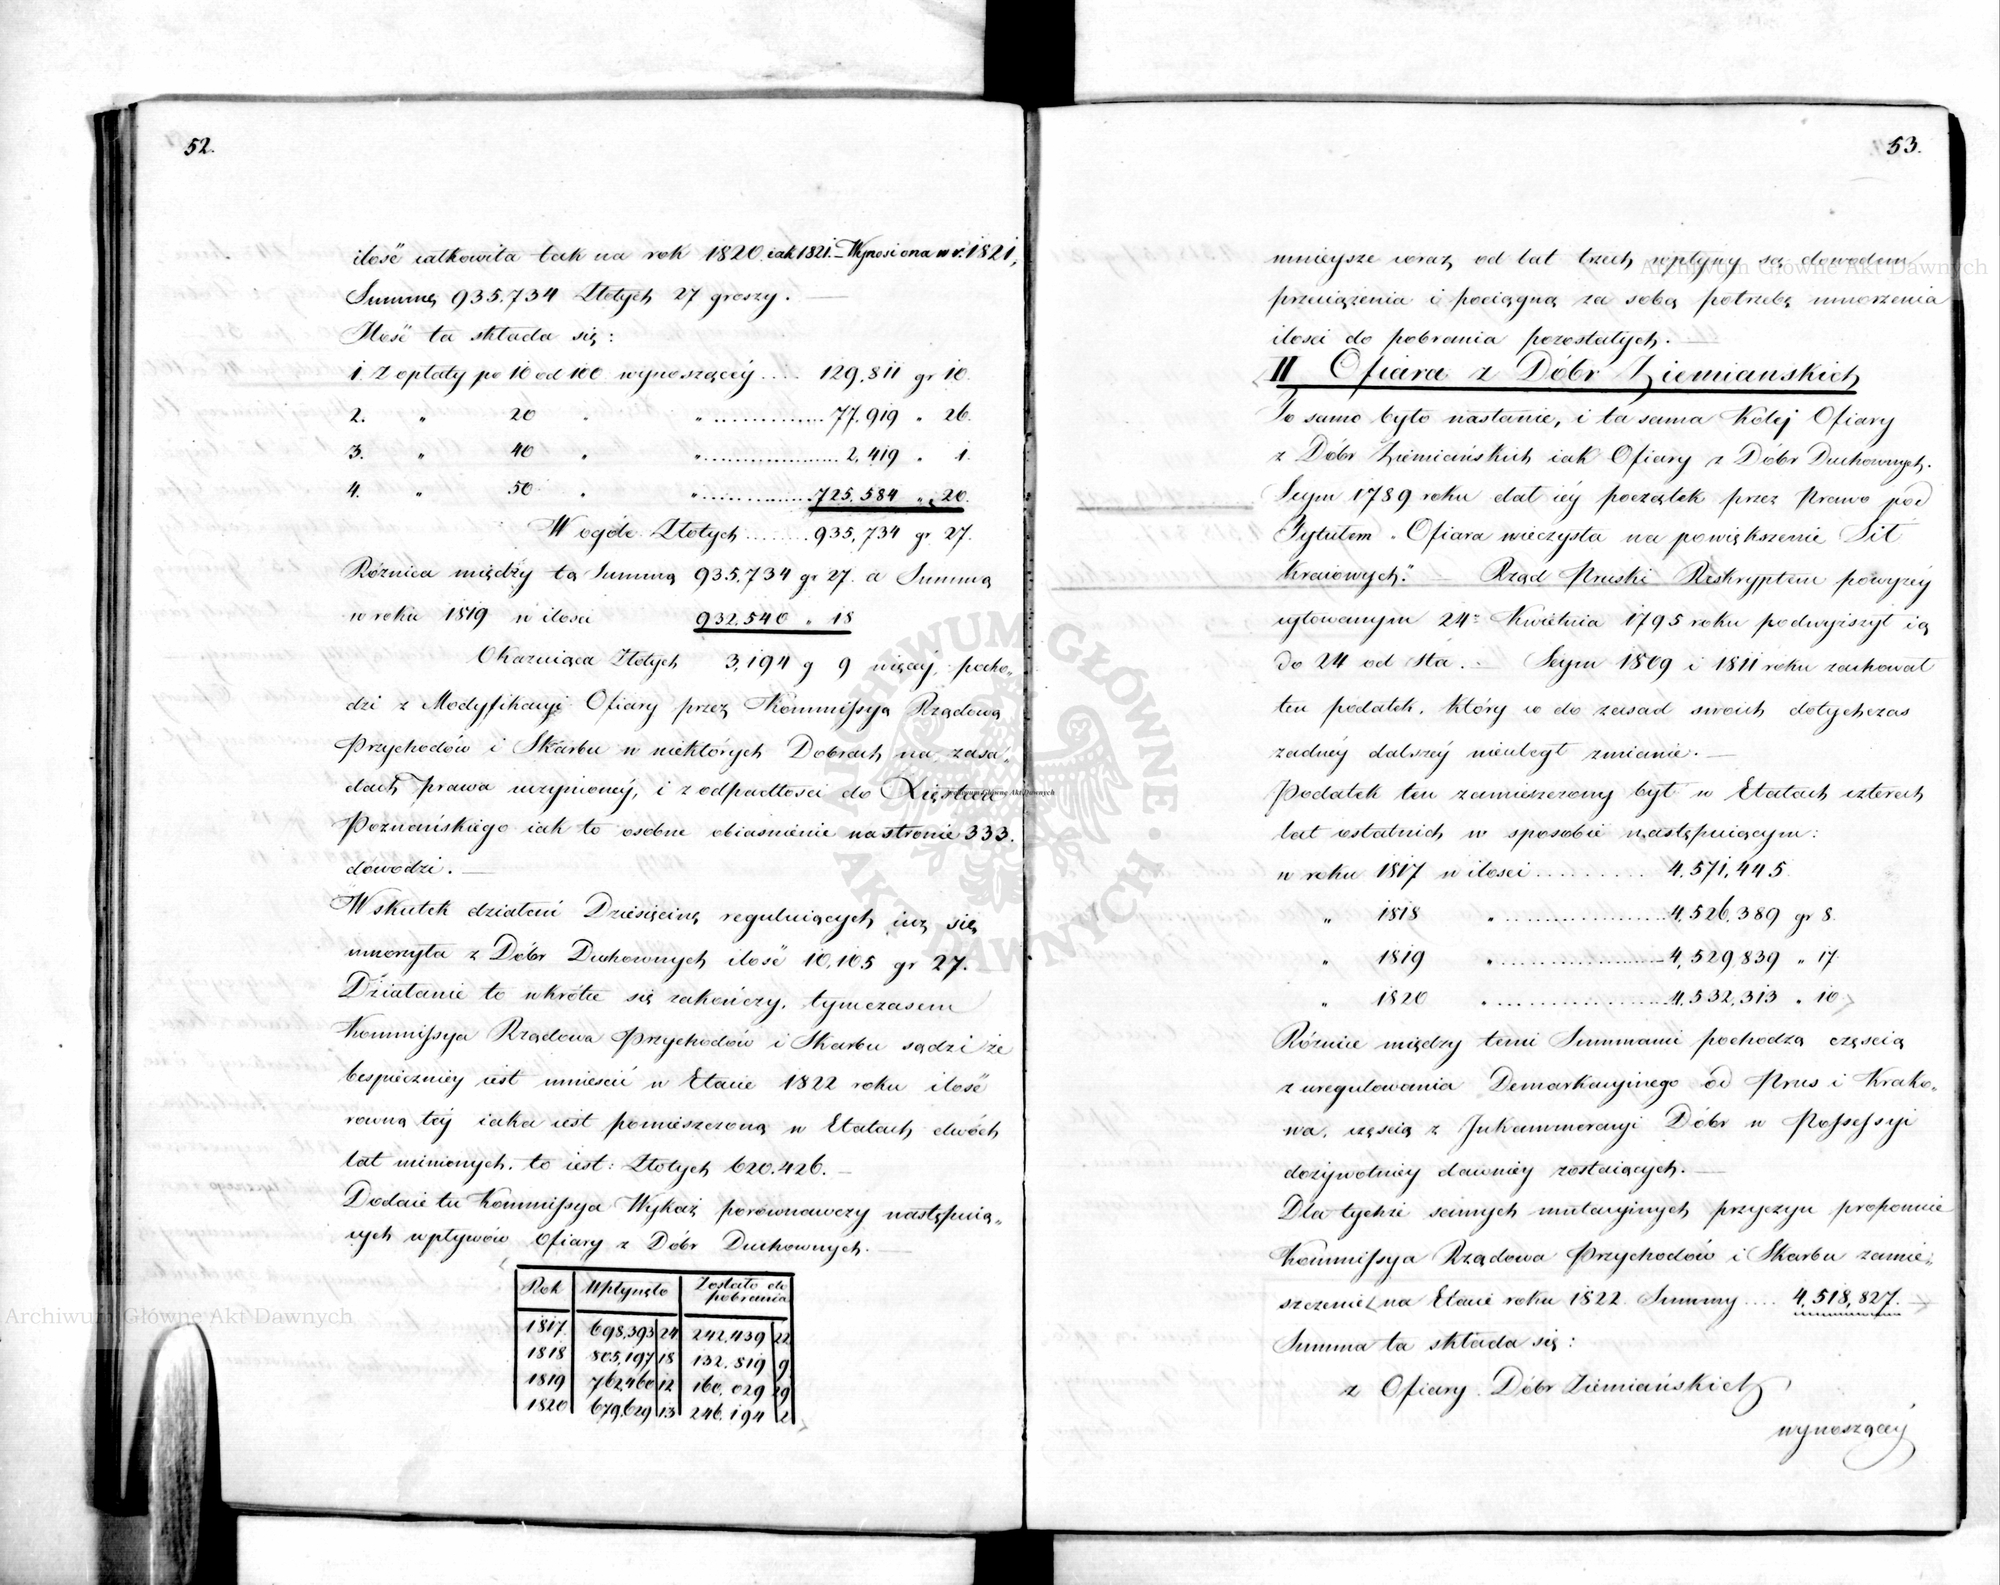 52.
ilość całkowita tak na rok 1820. iak 1821. – Wynosi ona w r. 1821,
Summę 935,734 Złotych 27 groszy. —
Ilość ta składa się:
1. Z opłaty po 10 od 100 wynoszącéy .... 129,811 gr 10.
2. " 20 " " ............. 77,919 " 26.
3. " 40 " " ............. 2,419 " 1.
4. " 50 " " ............. 725,584 " 20.
W ogóle Złotych ........ 935,734 gr 27.
Różnica między tą Summą 935,734 gr 27. a Summą
w roku 1819 w ilości 932,540 " 18
Okazuiąca Złotych 3,194 g 9 więcéj, pocho„
dzi z Modyfikacyi Ofiary przez Kommissyą Rządową
Przychodów i Skarbu w niektórych Dobrach na zasa„
dach prawa uczynionéy, i z odpadłości do Xięstwa
Poznańskiego iak to osobne obiaśnienie na stronie 333.
dowodzi. —
W skutek działań Dziesięcinę reguluiących iuż się
umorzyła z Dóbr Duchownych ilość 10,105 gr 27.
Działanie to wkrótce się zakończy, tymczasem
Kommissya Rządowa Przychodów i Skarbu sądzi że
bespieczniey iest umieścić w Etacie 1822 roku ilość
równą téy iaka iest pomieszczoną w Etatach dwóch
lat minionych. to iest: Złotych 620.426. —
Dodaie tu Kommissya Wykaz porównawczy następuią„
cych wpływów Ofiary z Dóbr Duchownych. —
Rok Wpłynęło Zostało do pobrania
1817. 698,393 24 242,439 22
1818 805,197 18 132,819 9
1819 762,460 12 160,029 29
1820 679,629 13 246,194 2
53.
mnieysze coraz od lat trzech wpływy są dowodem
przeciążenia i pociągną za sobą potrzebę umorzenia
ilości do pobrania pozostałych. —
II Ofiara z Dóbr Ziemianskich
To samo było nastanie, i ta sama Koléj Ofiary
z Dóbr Ziemiańskich iak Ofiary z Dóbr Duchownych.
Seym 1789 roku dał iéy początek przez Prawo pod
Tytułem „Ofiara wieczysta na powiększenie Sił
Kraiowych." — Rząd Pruski Reskryptem powyżéy
cytowanym 24º Kwietnia 1795 roku podwyższył ią
do 24 od sta. — Seym 1809 i 1811 roku zachował
ten podatek, który co do zasad swoich dotychczas
żadnéy dalszéy nieuległ zmianie. —
Podatek ten zamieszczony był w Etatach czterech
lat ostatnich w sposobie następuiącym:
w roku 1817 w ilości .......... 4,571,445.
" 1818 " .............. 4,526,389 gr 8.
" 1819 " .............. 4,529,839 " 17.
" 1820 " .............. 4,532,313 " 10
Różnice między temi Summami pochodzą częscią
z uregulowania Demarkacyinego od Prus i Krako„
wa, częscią z Inkammeracyi Dóbr w Possessyi
dożywotniéy dawniéy zostaiących. —
Dla tychże samych mutacyinych przyczyn proponuie
Kommissya Rządowa Przychodów i Skarbu zamie„
szczenie na Etacie roku 1822. Summy .... 4,518,827. —
Summa ta składa się:
z Ofiary Dóbr Ziemiańskich
wynoszącéy
Archiwum Główne Akt Dawnych
ARCHIWUM GŁÓWNE AKT DAWNYCH
Archiwum Główne Akt Dawnych
Archiwum Główne Akt Dawnych